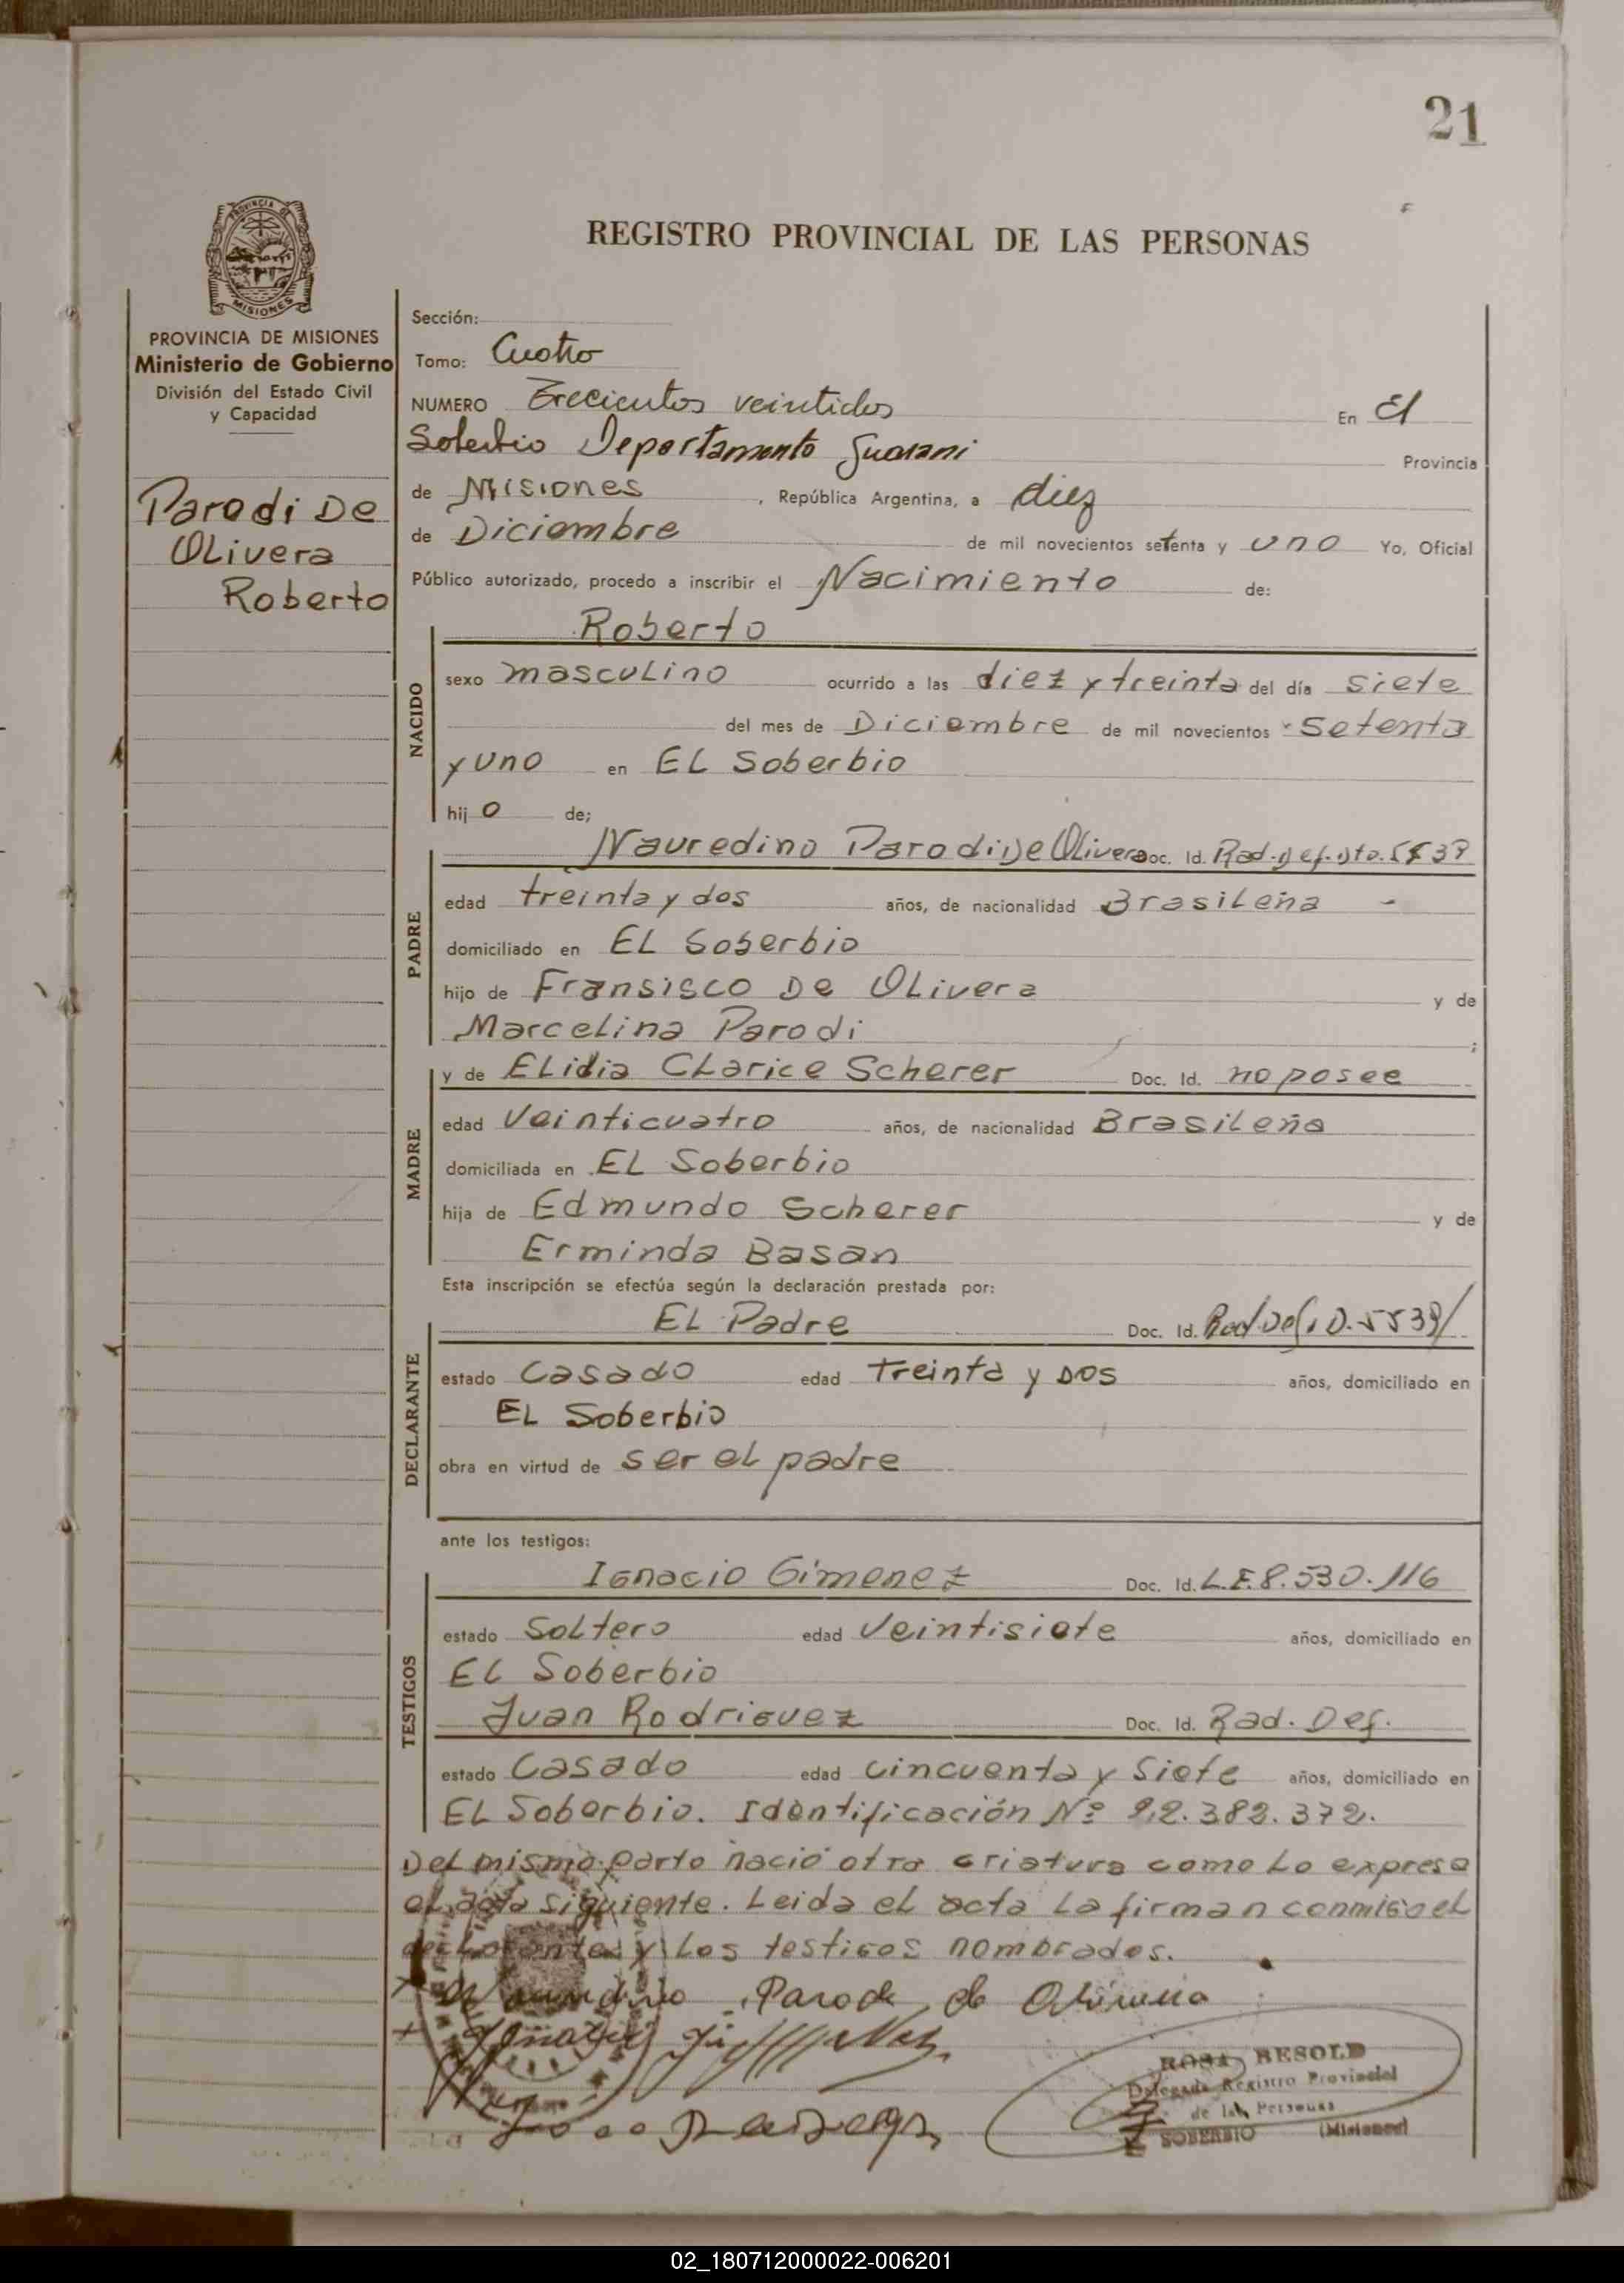 21
REGISTRO PROVINCIAL DE LAS PERSONAS
PROVINCIA DE MISIONES
PROVINCIA DE MISIONES
Ministerio de Gobierno
División del Estado Civil
y Capacidad
Parodi De
Olivera
Roberto
Sección:
Tomo: Cuatro
NUMERO Trecientos veintidos En El
Soberbio Departamento Guarani Provincia
de Misiones, República Argentina, a diez
de Diciembre de mil novecientos setenta y uno Yo, Oficial
Público autorizado, procedo a inscribir el Nacimiento de:
Roberto
NACIDO
sexo masculino ocurrido a las diez y treinta del día siete
del mes de Diciembre de mil novecientos setenta
y uno en EL Soberbio
hijo de;
PADRE
Nauredino Parodi De Olivera Doc. Id. Rad. Def. Dto.
edad treinta y dos años, de nacionalidad Brasileña -
domiciliado en EL Soberbio
hijo de Fransisco De Olivera y de
Marcelina Parodi ;
MADRE
y de Elidia Clarice Scherer Doc. Id. no posee
edad Veinticuatro años, de nacionalidad Brasileña
domiciliada en EL Soberbio
hija de Edmundo Scherer y de
Erminda Basan
Esta inscripción se efectúa según la declaración prestada por:
DECLARANTE
EL Padre Doc. Id. Rad. Def. D. 5539/
estado Casado edad Treinta y Dos años, domiciliado en
EL Soberbio
obra en virtud de ser el padre
ante los testigos:
TESTIGOS
Ignacio Gimenez Doc. Id. L.E. 8.530.116
estado Soltero edad Veintisiete años, domiciliado en
EL Soberbio
Juan Rodriguez Doc. Id. Rad. Def.
estado Casado edad Cincuenta y Siete años, domiciliado en
EL Soberbio. Identificación Nº 92.382.372.
Del mismo parto nació otra criatura como lo expresa
el acta siguiente. Leida el acta la firman conmigo el
declarante y los testigos nombrados.
Parodi de Olivera
Ignacio
ROSA BESOLD
Delegada Registro Provincial
de las Personas
SOBERBIO (Misiones)
02_180712000022-006201